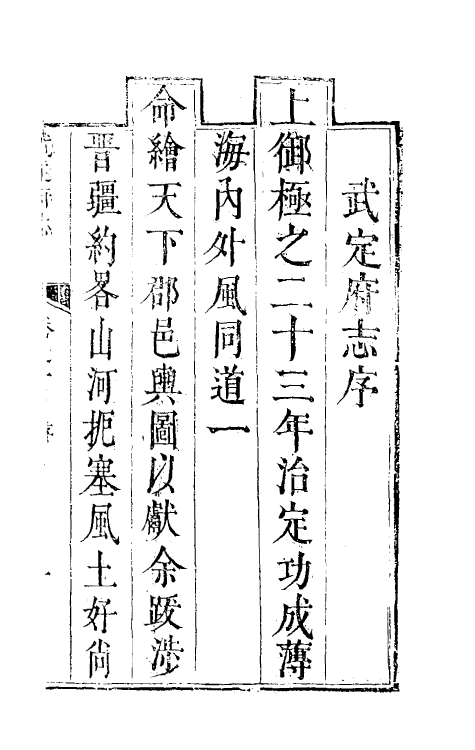 武定府志序
上御極之二十三年治定功成薄
海內外風同道一
命繪天下郡邑輿圖以獻余跋涉
晋疆約畧山河扼塞風土好尚